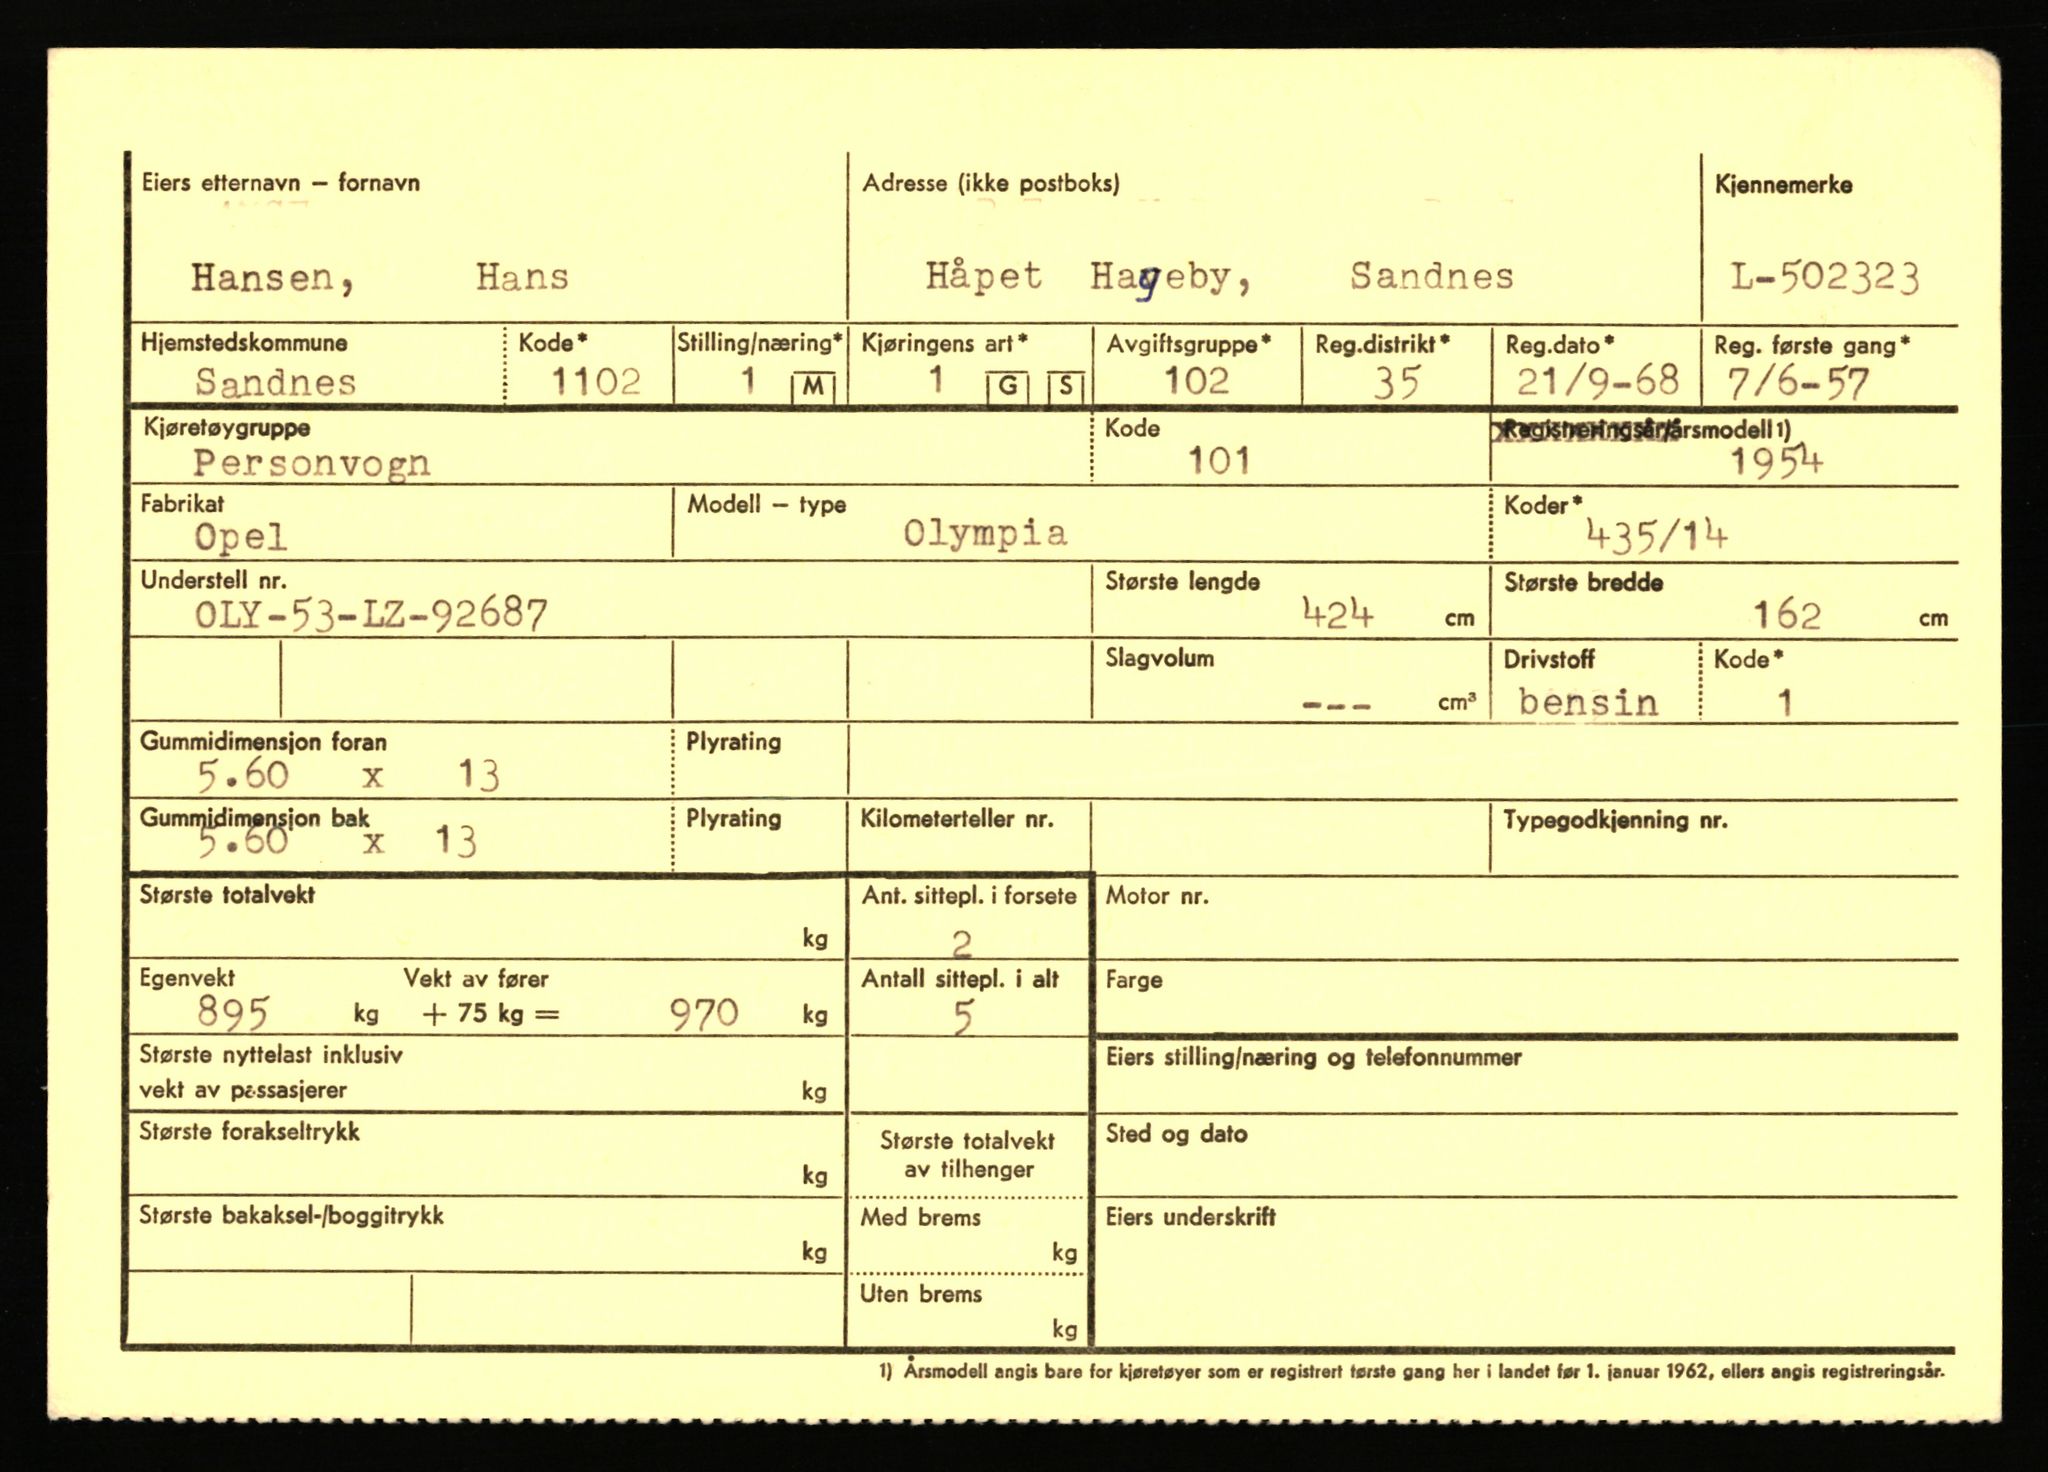 Eiers etternavn – fornavn Adresse (ikke postboks) Kjennemerke
Hansen, Hans Håpet Hageby, Sandnes L-502323
Hjemstedskommune Kode* Stilling/næring* Kjøringens art* Avgiftsgruppe* Reg.distrikt* Reg.dato* Reg. første gang*
Sandnes 1102 1 M 1 G S 102 35 21/9-68 7/6-57
Kjøretøygruppe Kode Registreringsår/årsmodell 1)
Personvogn 101 1954
Fabrikat Modell – type Koder*
Opel Olympia 435/14
Understell nr. Største lengde Største bredde
OLY-53-LZ-92687 424 cm 162 cm
Slagvolum Drivstoff Kode*
--- cm³ bensin 1
Gummidimensjon foran Plyrating
5.60 x 13
Gummidimensjon bak Plyrating Kilometerteller nr. Typegodkjenning nr.
5.60 x 13
Største totalvekt Ant. sittepl. i forsete Motor nr.
kg 2
Egenvekt Vekt av fører Antall sittepl. i alt Farge
895 kg + 75 kg = 970 kg 5
Største nyttelast inklusiv Eiers stilling/næring og telefonnummer
vekt av passasjerer kg
Største forakseltrykk Største totalvekt Sted og dato
kg av tilhenger
Største bakaksel-/boggitrykk Med brems Eiers underskrift
kg kg
Uten brems
kg
1) Årsmodell angis bare for kjøretøyer som er registrert første gang her i landet før 1. januar 1962, ellers angis registreringsår.